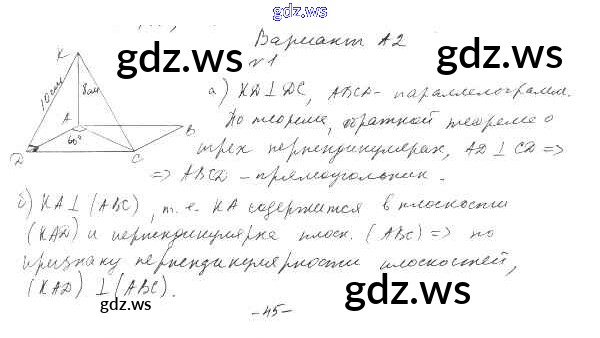 gdz.ws
Вариант А2
gdz.ws
gdz.ws
№1
K
10 см
8 см
A
B
60°
D
C
а) KD⊥DC, ABCD - параллелограмм.
По теореме, обратной теореме о
трех перпендикулярах, AD⊥CD =>
=> ABCD - прямоугольник.
б) KA⊥(ABC), т.е. KA содержится в плоскости
(KAD) и перпендикулярна плоск. (ABC) => по
признаку перпендикулярности плоскостей,
(KAD)⊥(ABC).
gdz.ws
gdz.ws
-45-